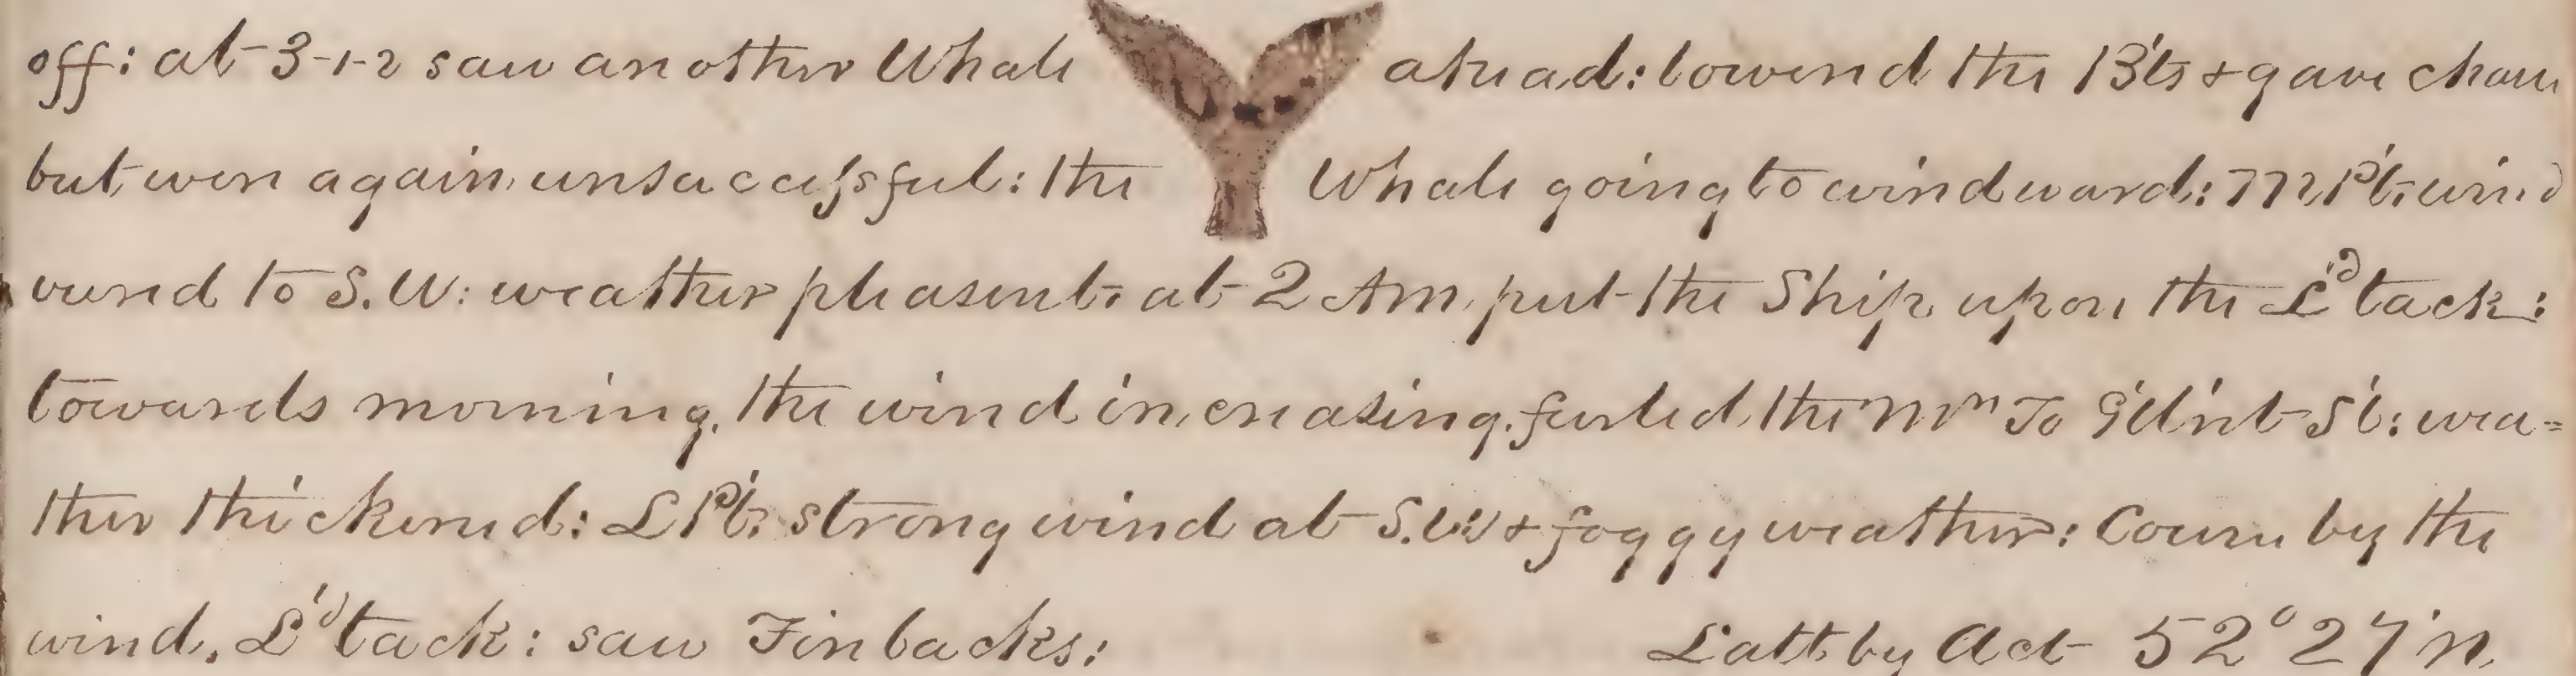 off: at 3-1-2 saw another Whale ahead: lowered the B'ts & gave chase
but were again unsuccessful: the Whale going to windward: M P't: wind
vered to S.W: weather pleasent: at 2 Am, put the Ship upon the L'd tack:
towards morning, the wind increasing, furled the M'n To G'll'nt S'l: wea=
ther thickened: L P't: strong wind at S.W & foggy weather: Course by the
wind, L'd tack: saw Finbacks: Latt by Act 52° 27' N.